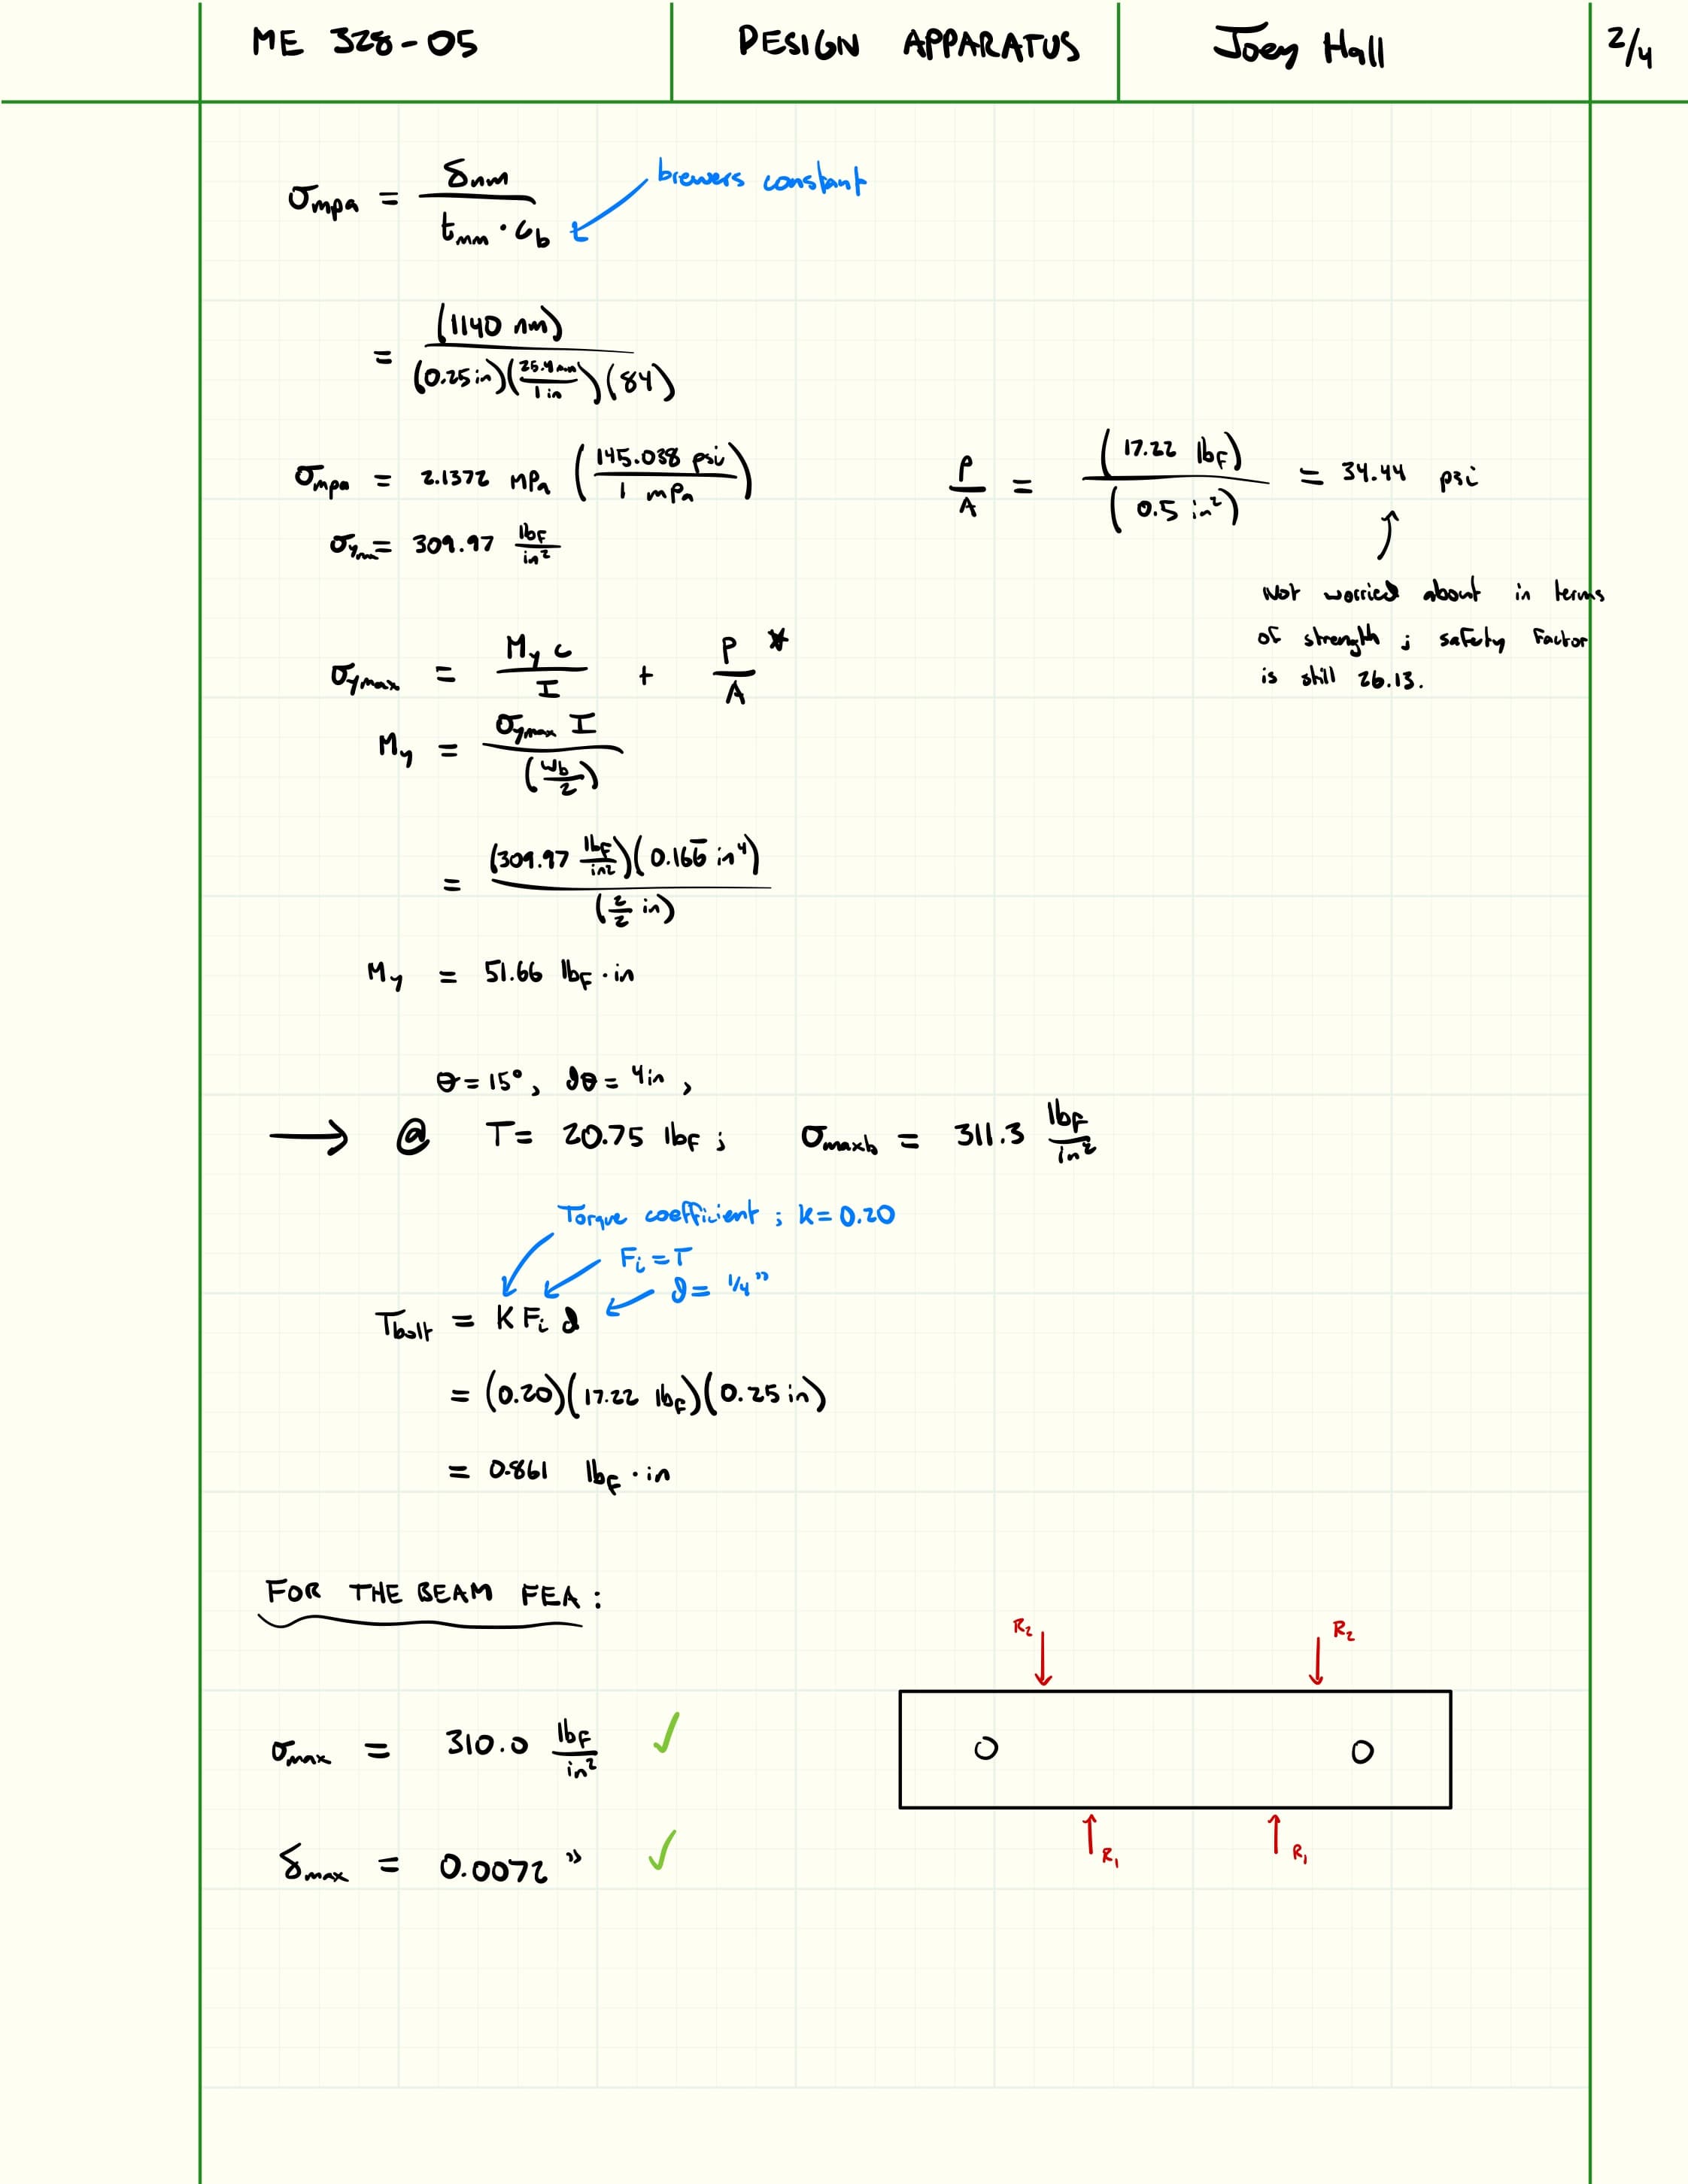 ME 328-05 DESIGN APPARATUS Joey Hall 2/4
σ_mpa = δ_nm / (t_mm · c_b) brewers constant
= (1140 nm) / ((0.25 in)(25.4 mm / 1 in)(84))
σ_mpa = 2.1372 mPa (145.038 psi / 1 mPa)
P/A = (17.22 lbf) / (0.5 in²) = 34.44 psi
σ_ymax = 309.97 lbf/in²
Not worried about in terms
of strength ; safety factor
is still 26.13.
σ_ymax = M_y c / I + P/A *
M_y = σ_ymax I / (w_b/2)
= (309.97 lbf/in²)(0.166̅ in⁴) / (2/2 in)
M_y = 51.66 lbf · in
θ = 15°, dθ = 4in ,
→ @ T = 20.75 lbf ; σ_maxb = 311.3 lbf/in²
Torque coefficient ; k = 0.20
F_i = T
d = 1/4"
T_bolt = K F_i d
= (0.20)(17.22 lbf)(0.25 in)
= 0.861 lbf · in
FOR THE BEAM FEA :
R₂ R₂
σ_max = 310.0 lbf/in² ✓
R₁ R₁
δ_max = 0.0072" ✓